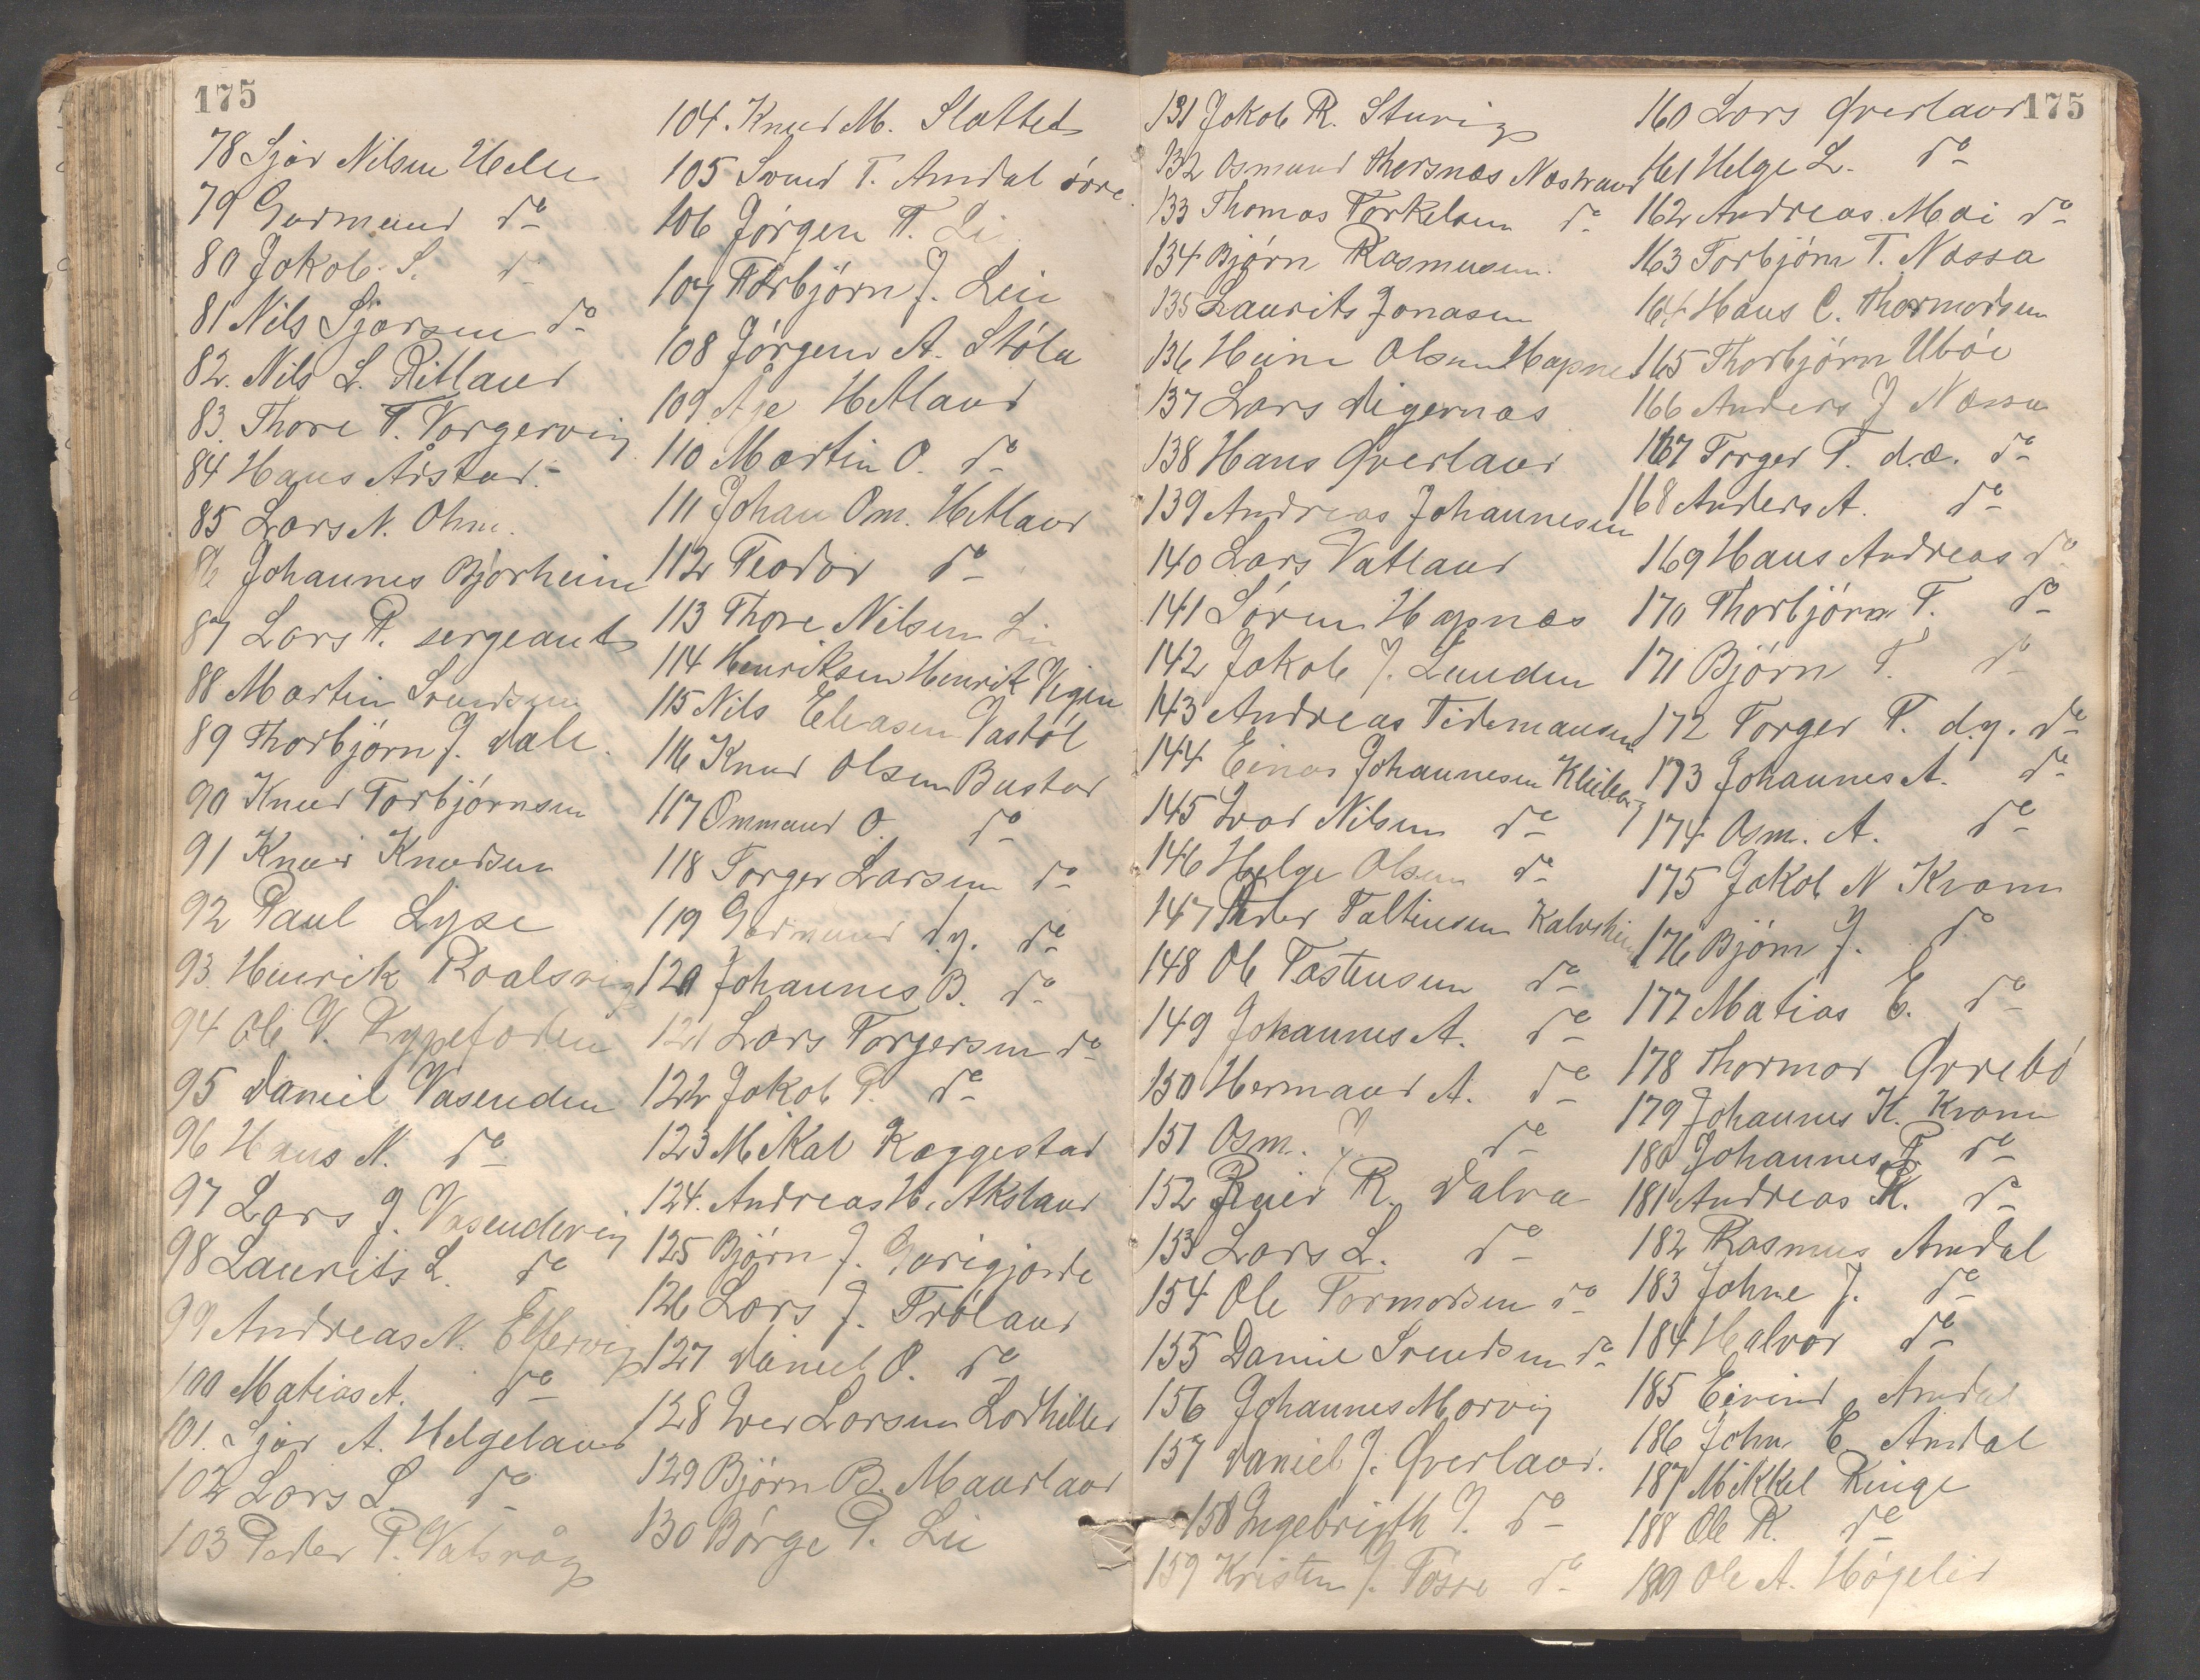 175
78 Sjor Nilsen Helle
79 Gudmund do
80 Jakob S. do
81 Nils Sjorsen do
82. Nils L. Ritland
83. Thore T. Vorgervig
84 Hans Årstad.
85 Lars N. Ohm.
86 Johannes Bjørheim
87 Lars P. sergeant
88 Martin Svendsen
89 Thorbjørn J. Dale.
90 Knud Torbjørnsen
91 Knud Knudsen
92 Paul Lyse
93. Henrik Roalsvig
94 Ole V. Rypefoden
95 Daniel Vasenden
96 Hans N. do
97 Lars J. Vasendvig
98 Laurits L. do
99 Andreas N. Effervig
100 Matias A. do
101. Sjor A. Helgeland
102 Lars L. do
103 Peder P. Valsvåg
104. Knud M. Slatted
105 Svend T. Amdal övre
106 Jørgen T. Li
107 Torbjørn J. Lie
108 Jørgen A. Støle
109 Aje Hetland
110 Martin O. do
111 Johan Om. Hetland
112 Teodor do
113 Thore Nilsen Li
114 Henriksen Henrik Vigen
115 Nils Eleasen Vastöl
116 Knud Olsen Bastad
117 Ommund O. do
118 Torger Larsen do
119 Gudmund d.y. do
120 Johannes B. do
121 Lars Torgersen do
122 Jakob T. do
123 Mikal Kaggestad
124. Andreas H. Aksland
125 Bjørn J. Gorigjorde
126 Lars J. Trøland
127 Daniel O. do
128 Iver Larsen Lodhiller
129 Bjørn B. Maurland
130 Børge P. Lie
175
131 Jakob R. Stuvig
132 Osmund Thorsnæs Nøstrand
133 Thomas Torkelsen do
134 Bjørn Rasmusen.
135 Laurits Jonasen
136 Heine Olsen Hapnes
137 Lars Digernæs
138 Hans Qverland
139 Andreas Johannesen
140 Lars Vatland
141 Søren Hapnæs
142 Jakob J. Lunden
143 Andreas Tidemansen
144 Einar Johannesen Kleiberg
145 Ivar Nilsen do
146 Helge Olsen do
147 Peder Taltiusen Kalvheim
148 Ole Tostensen do
149 Johannes A. do
150 Hermand A. do
151 Osm. J. do
152 Reier R. Dalva
153 Lars L. do
154 Ole Tormodsen do
155 Daniel Svendsen do
156 Johannes Morvig
157 Daniel J. Qverland.
158 Ingebrigth J. do
159 Kristen J. Tösse do
160 Lars Qverland
161 Helge L. do
162 Andreas Moi do
163 Torbjörn T. Nassa
164 Hans C. Thormodsen
165 Thorbjörn Ubøe
166 Anders J Nassa
167 Torger T. d.æ. do
168 Anders A. do
169 Hans Andreas do
170 Thorbjörn T. do
171 Bjørn T. do
172 Torger T. d.y. do
173 Johannes A. do
174 Osm. A. do
175 Jakob N Kvam
176 Bjørn J. do
177 Matias E. do
178 Thormod Orrebø
179 Johannes K. Kvam
180 Johannes T do
181 Andreas K. do
182 Rasmus Amdal
183 Johne J. do
184 Halvor do
185 Eivind Amdal
186 John E. Amdal
187 Mikkel Ringe
188 Ole R. do
189 Ole A. Høgelid